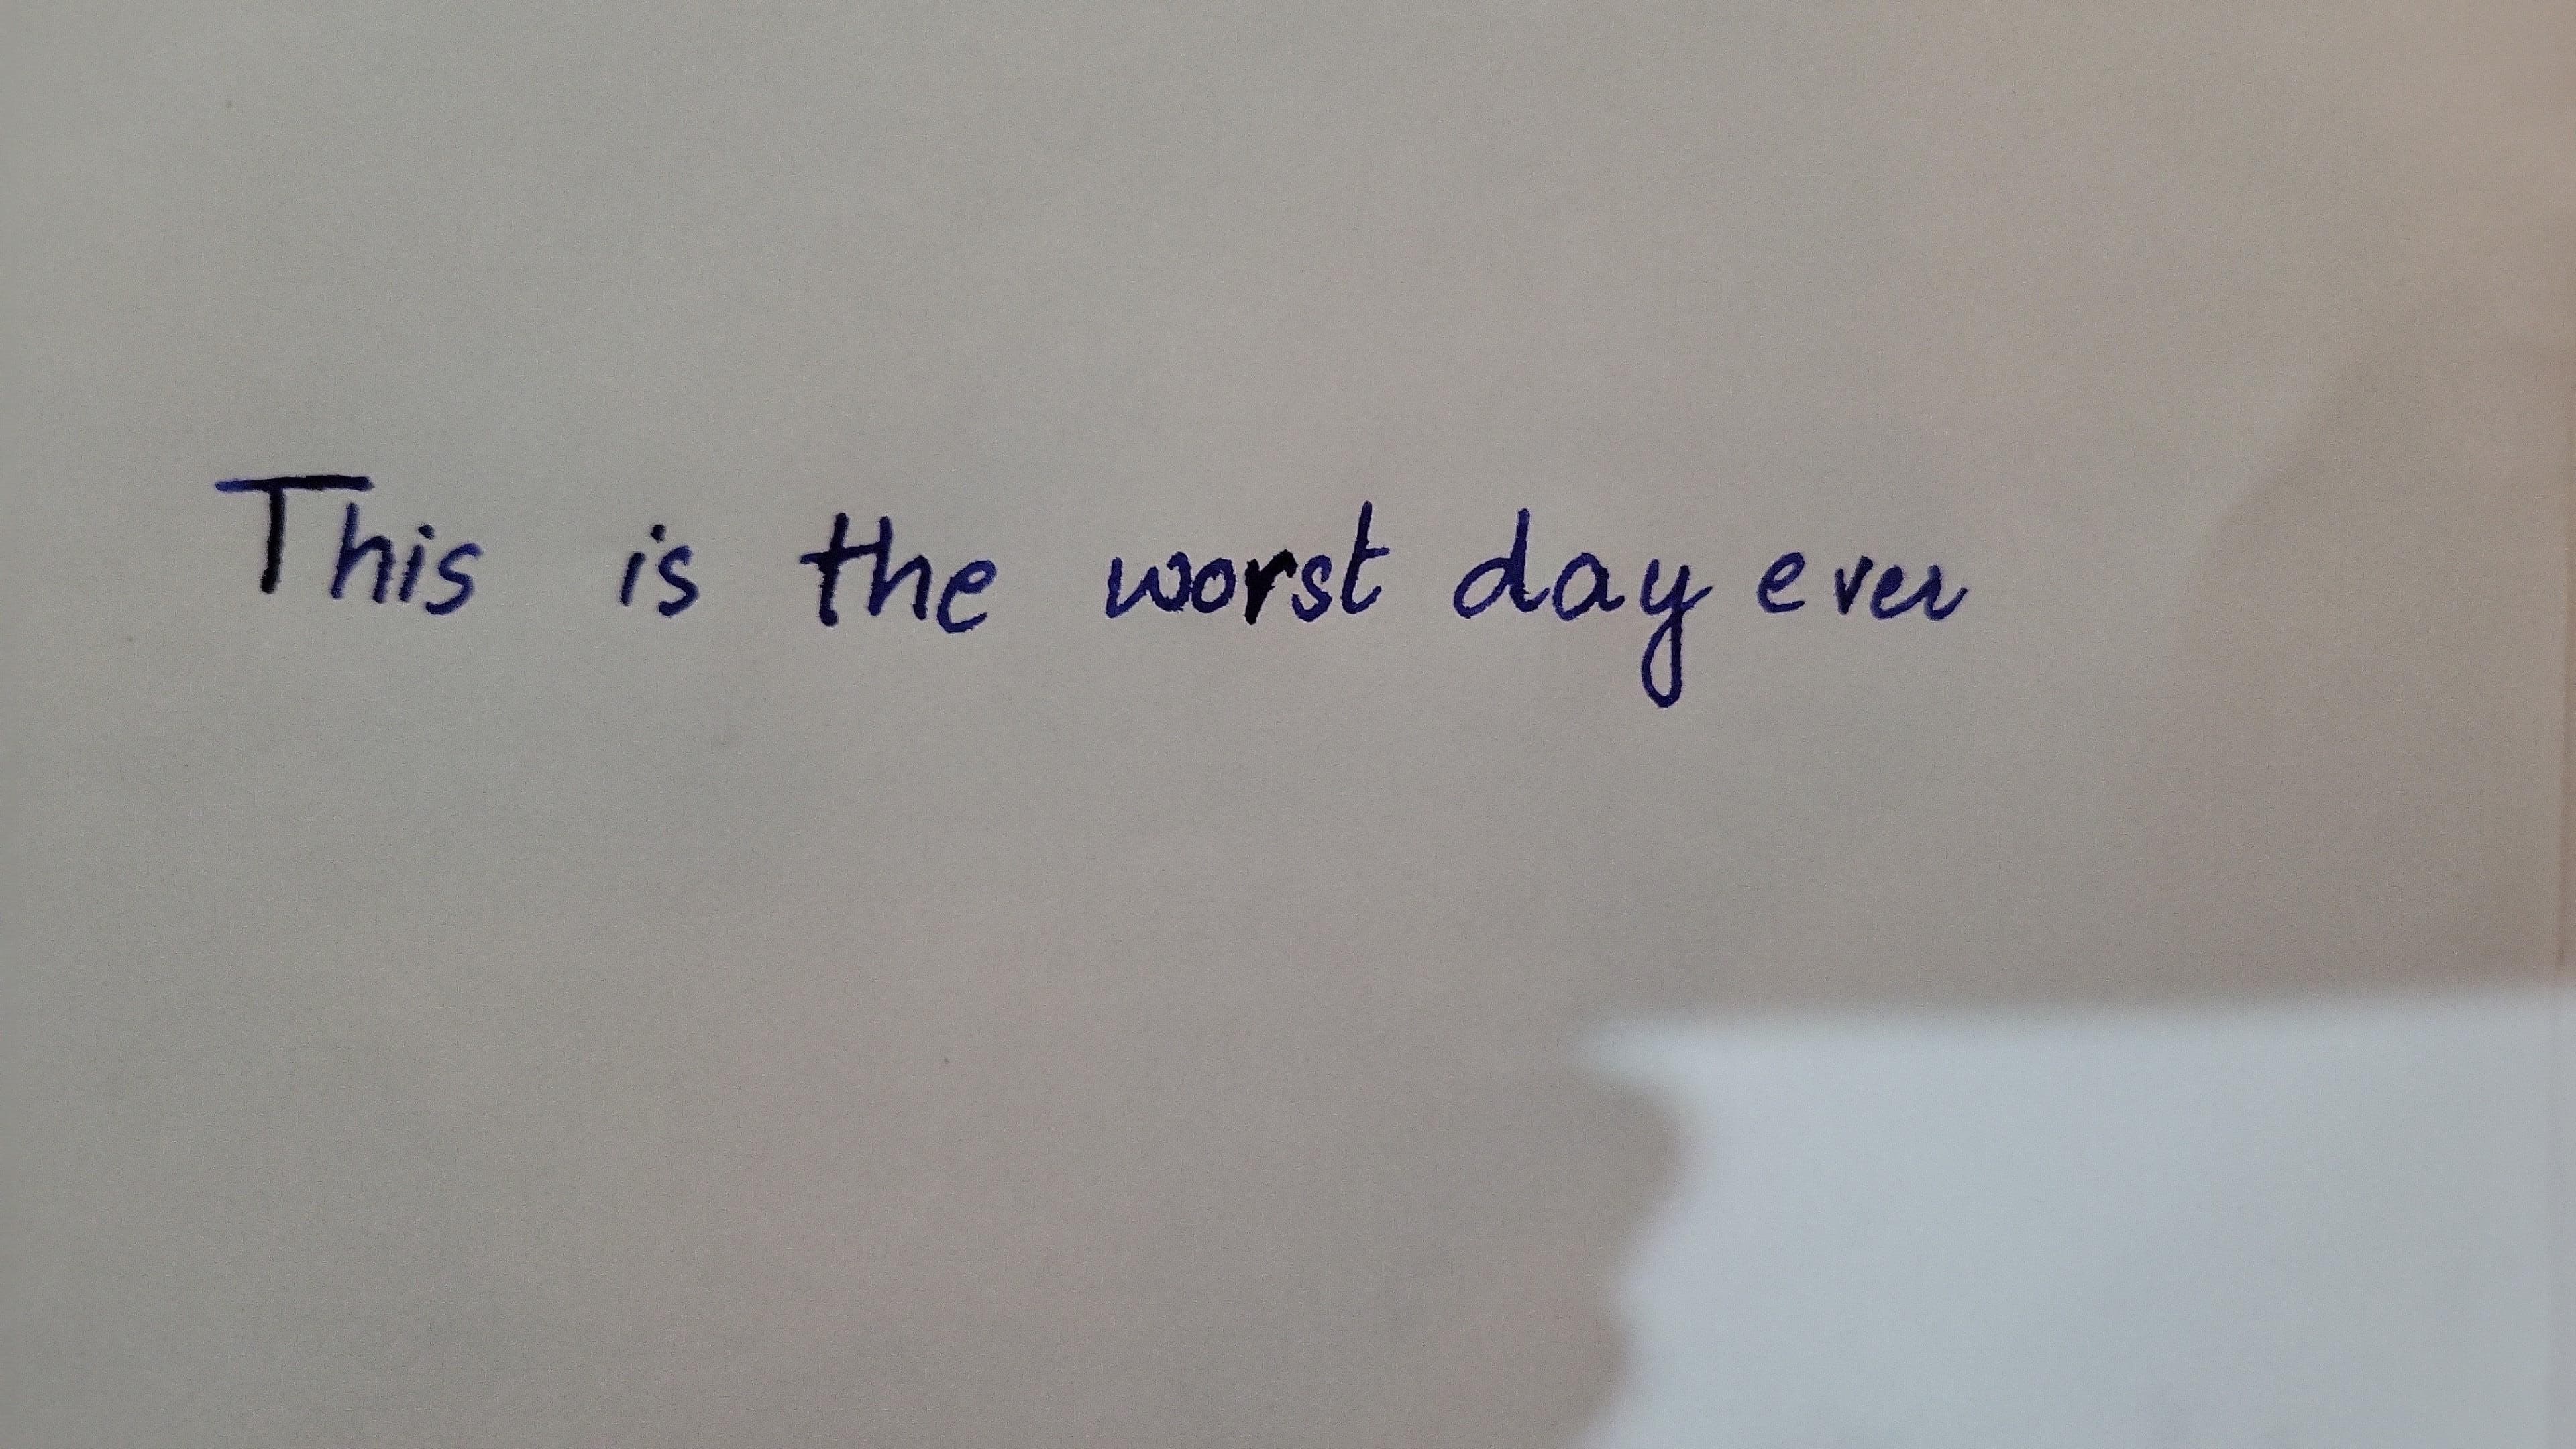 This is the worst day ever